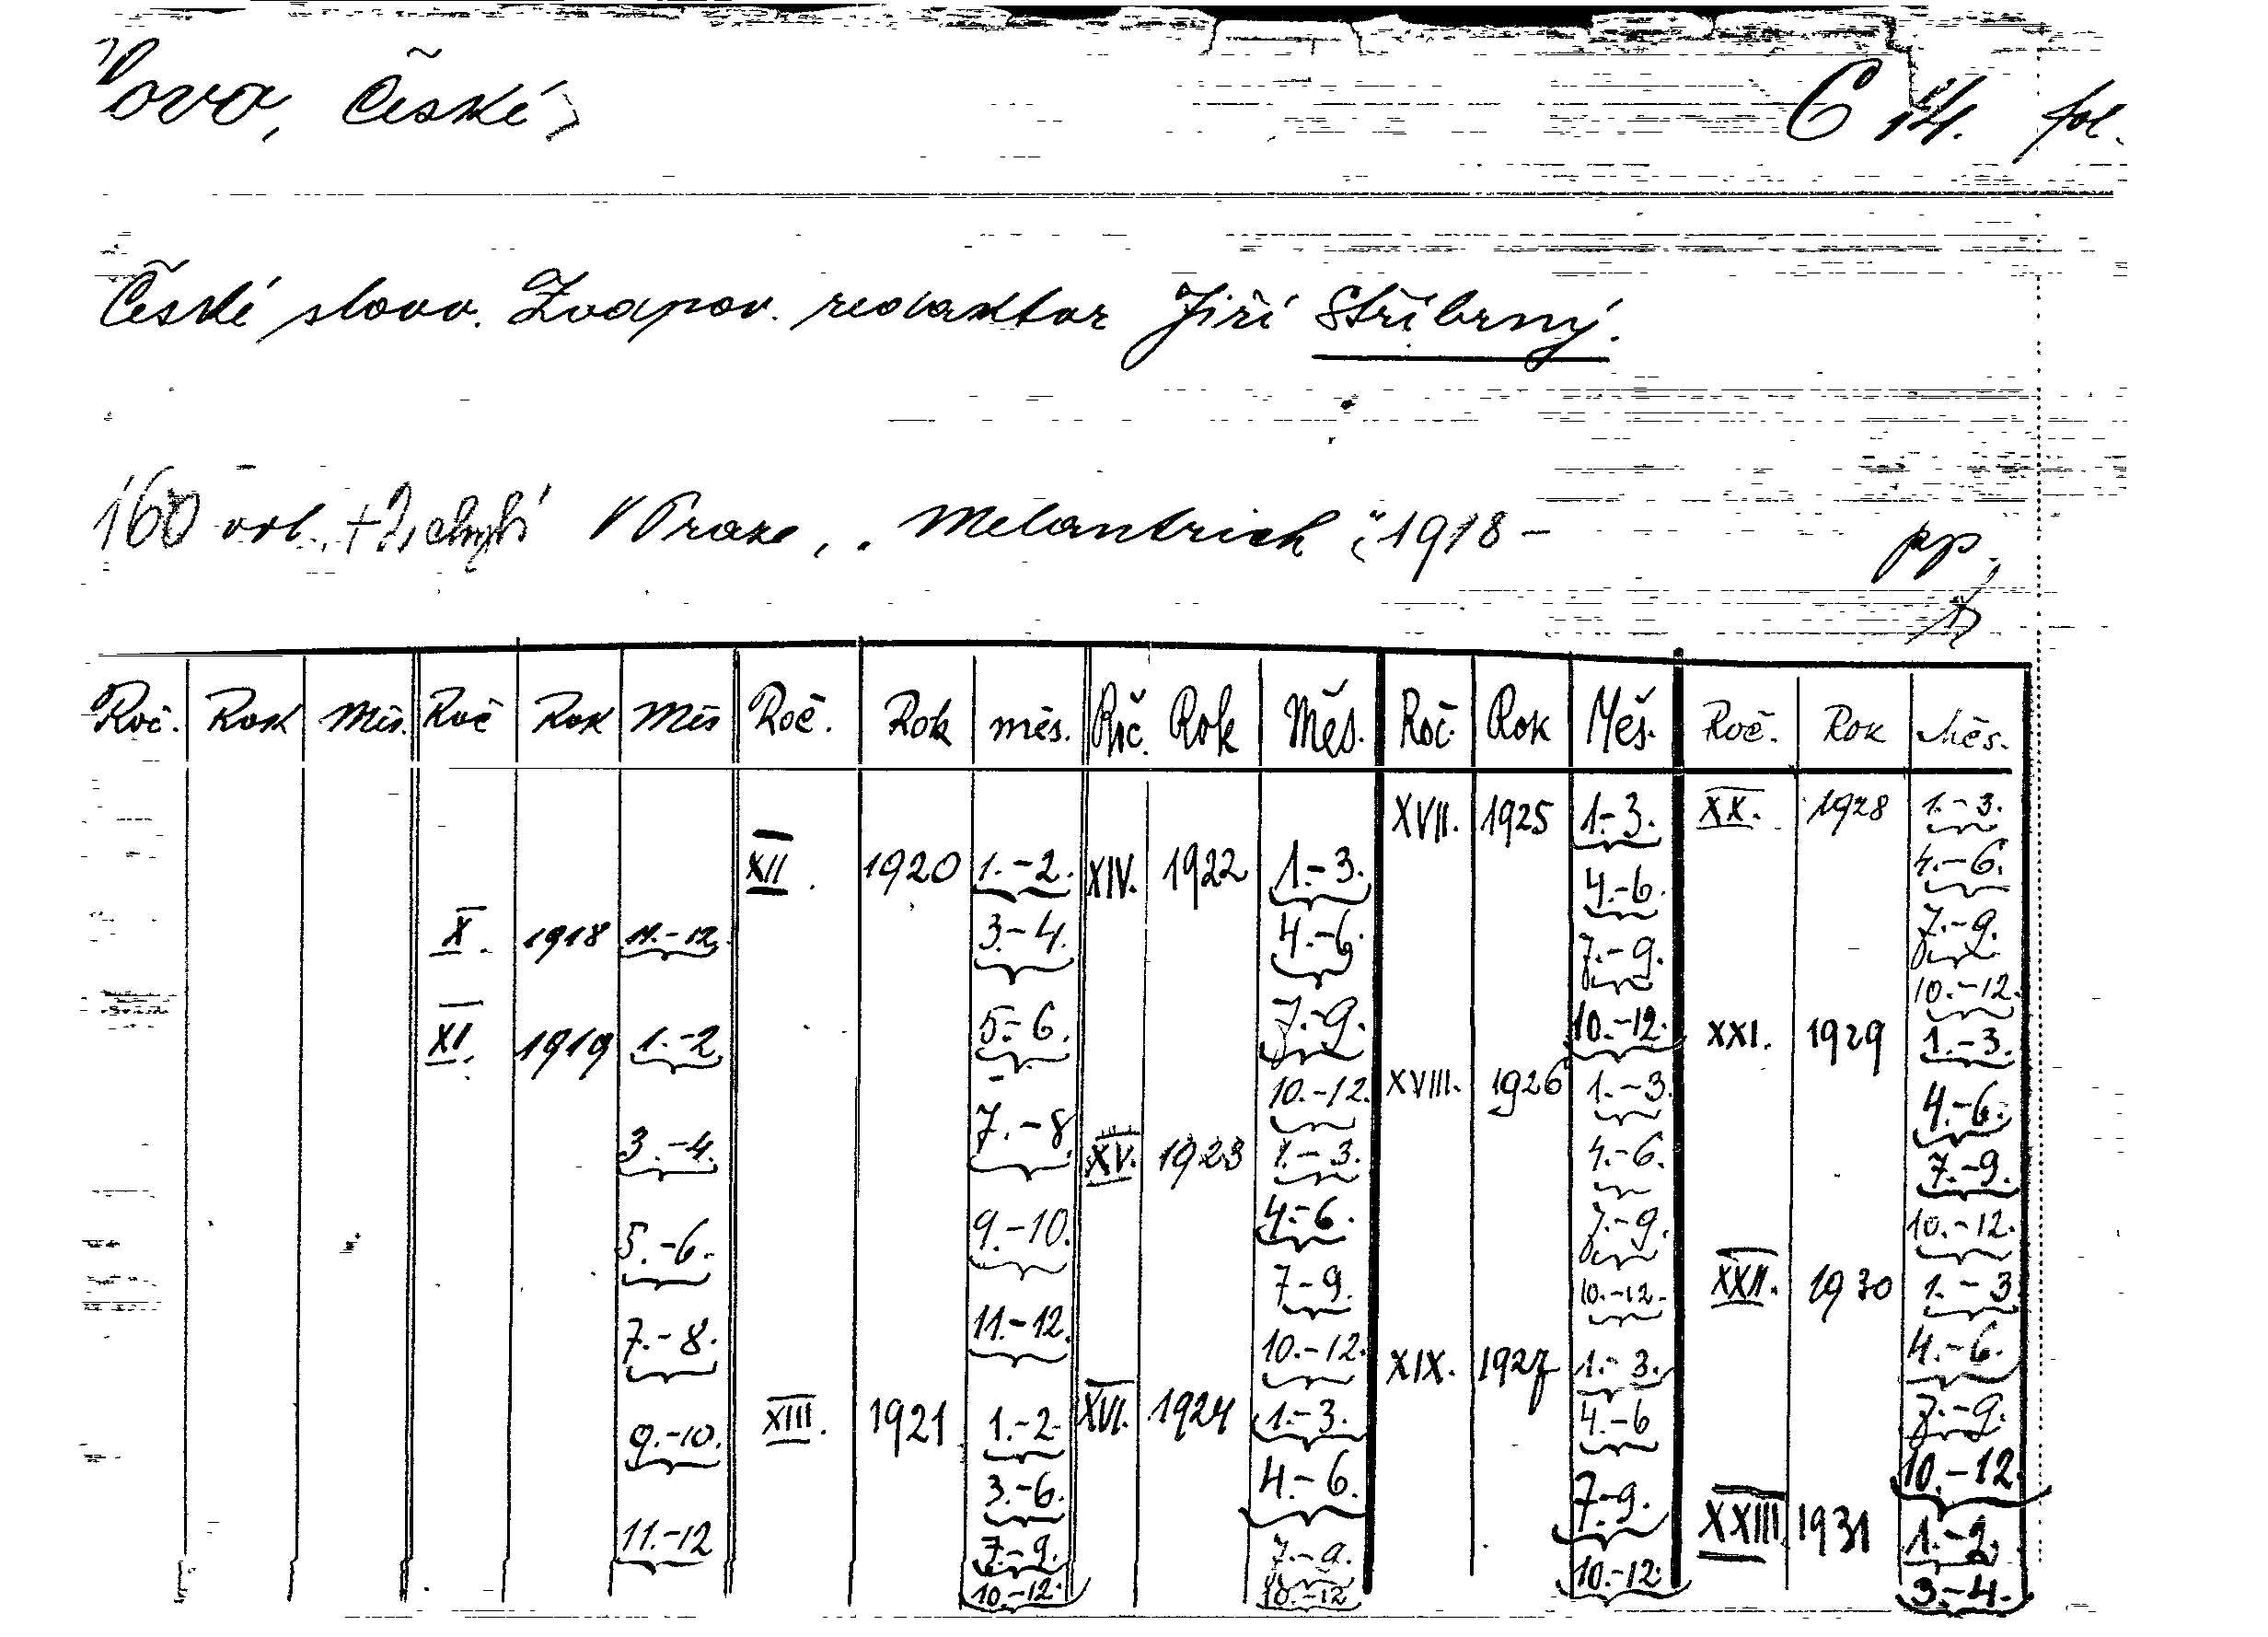 Slovo, České,
C 14. fol.
České slovo. Zodpov. redaktor Jiří Stříbrný.
160 vol. + 2 chybí V Praze, „Melantrich“, 1918 –
pp.
Roč. Rok Měs. Roč Rok Měs Roč. Rok měs. Roč. Rok Měs. Roč. Rok Měs. Roč. Rok Měs.
XVII. 1925 1.-3. XX. 1928 1.-3.
XII. 1920 1.-2. XIV. 1922 1.-3. 4.-6. 4.-6.
X. 1918 11.-12. 3.-4. 4.-6. 7.-9. 7.-9.
XI. 1919 1.-2 5.-6. 7.-9. 10.-12. XXI. 1929 10.-12. 1.-3.
3.-4. 7.-8. 10.-12. XVIII. 1926 1.-3. 4.-6.
XV. 1923 1.-3. 4.-6. 7.-9.
5.-6. 9.-10. 4.-6. 7.-9. 10.-12.
7-9. 10.-12. XXII. 1930 1.-3
7.-8. 11.-12. 10.-12. XIX. 1927 1.-3. 4.-6.
9.-10. XIII. 1921 1.-2. XVI. 1924 1.-3. 4.-6 7.-9.
3.-6. 4.-6. 7.-9. 10.-12.
11.-12 7.-9. 7.-9. XXIII 1931 1.-2.
10.-12. 10.-12 10.-12. 3.-4.